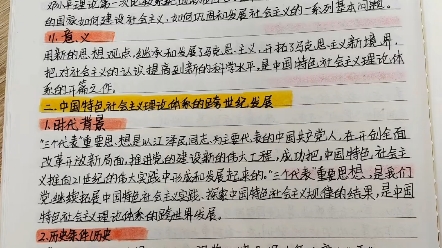 邓小平理论第一次比较系统
的国家如何建设社会主义,如何巩固和发展社会主义的一系列基本问题。
小.意义
用新的思想观点,继承和发展了马克思主义,开拓了马克思主义新境界,
把对社会主义的认识提高到新的科学水平,是中国特色社会主义理论体
系的开篇之作。
二.中国特色社会主义理论体系的跨世纪发展
1.时代背景
"三个代表"重要思想是以江泽民同志为主要代表的中国共产党人,在开创全面
改革开放新局面,推进党的建设新的伟大工程,成功把中国特色社会主
义推向21世纪的伟大实践中形成和发展起来的。"三个代表"重要思想,是我们
党继续拓展中国特色社会主义实践、探索中国特色社会主义规律的结果,是中国
特色社会主义理论体系的跨世界发展。
2.历史条件/历史